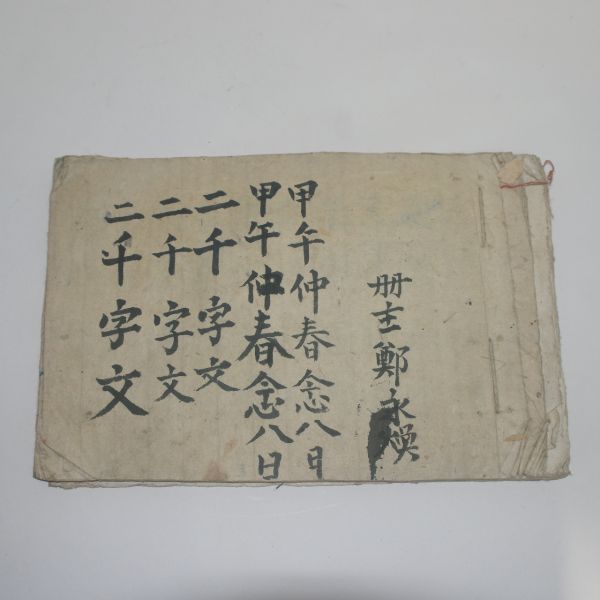 册主鄭永煥
甲午仲春念八日
甲午仲春念八日
二千字文
二千字文
二千字文